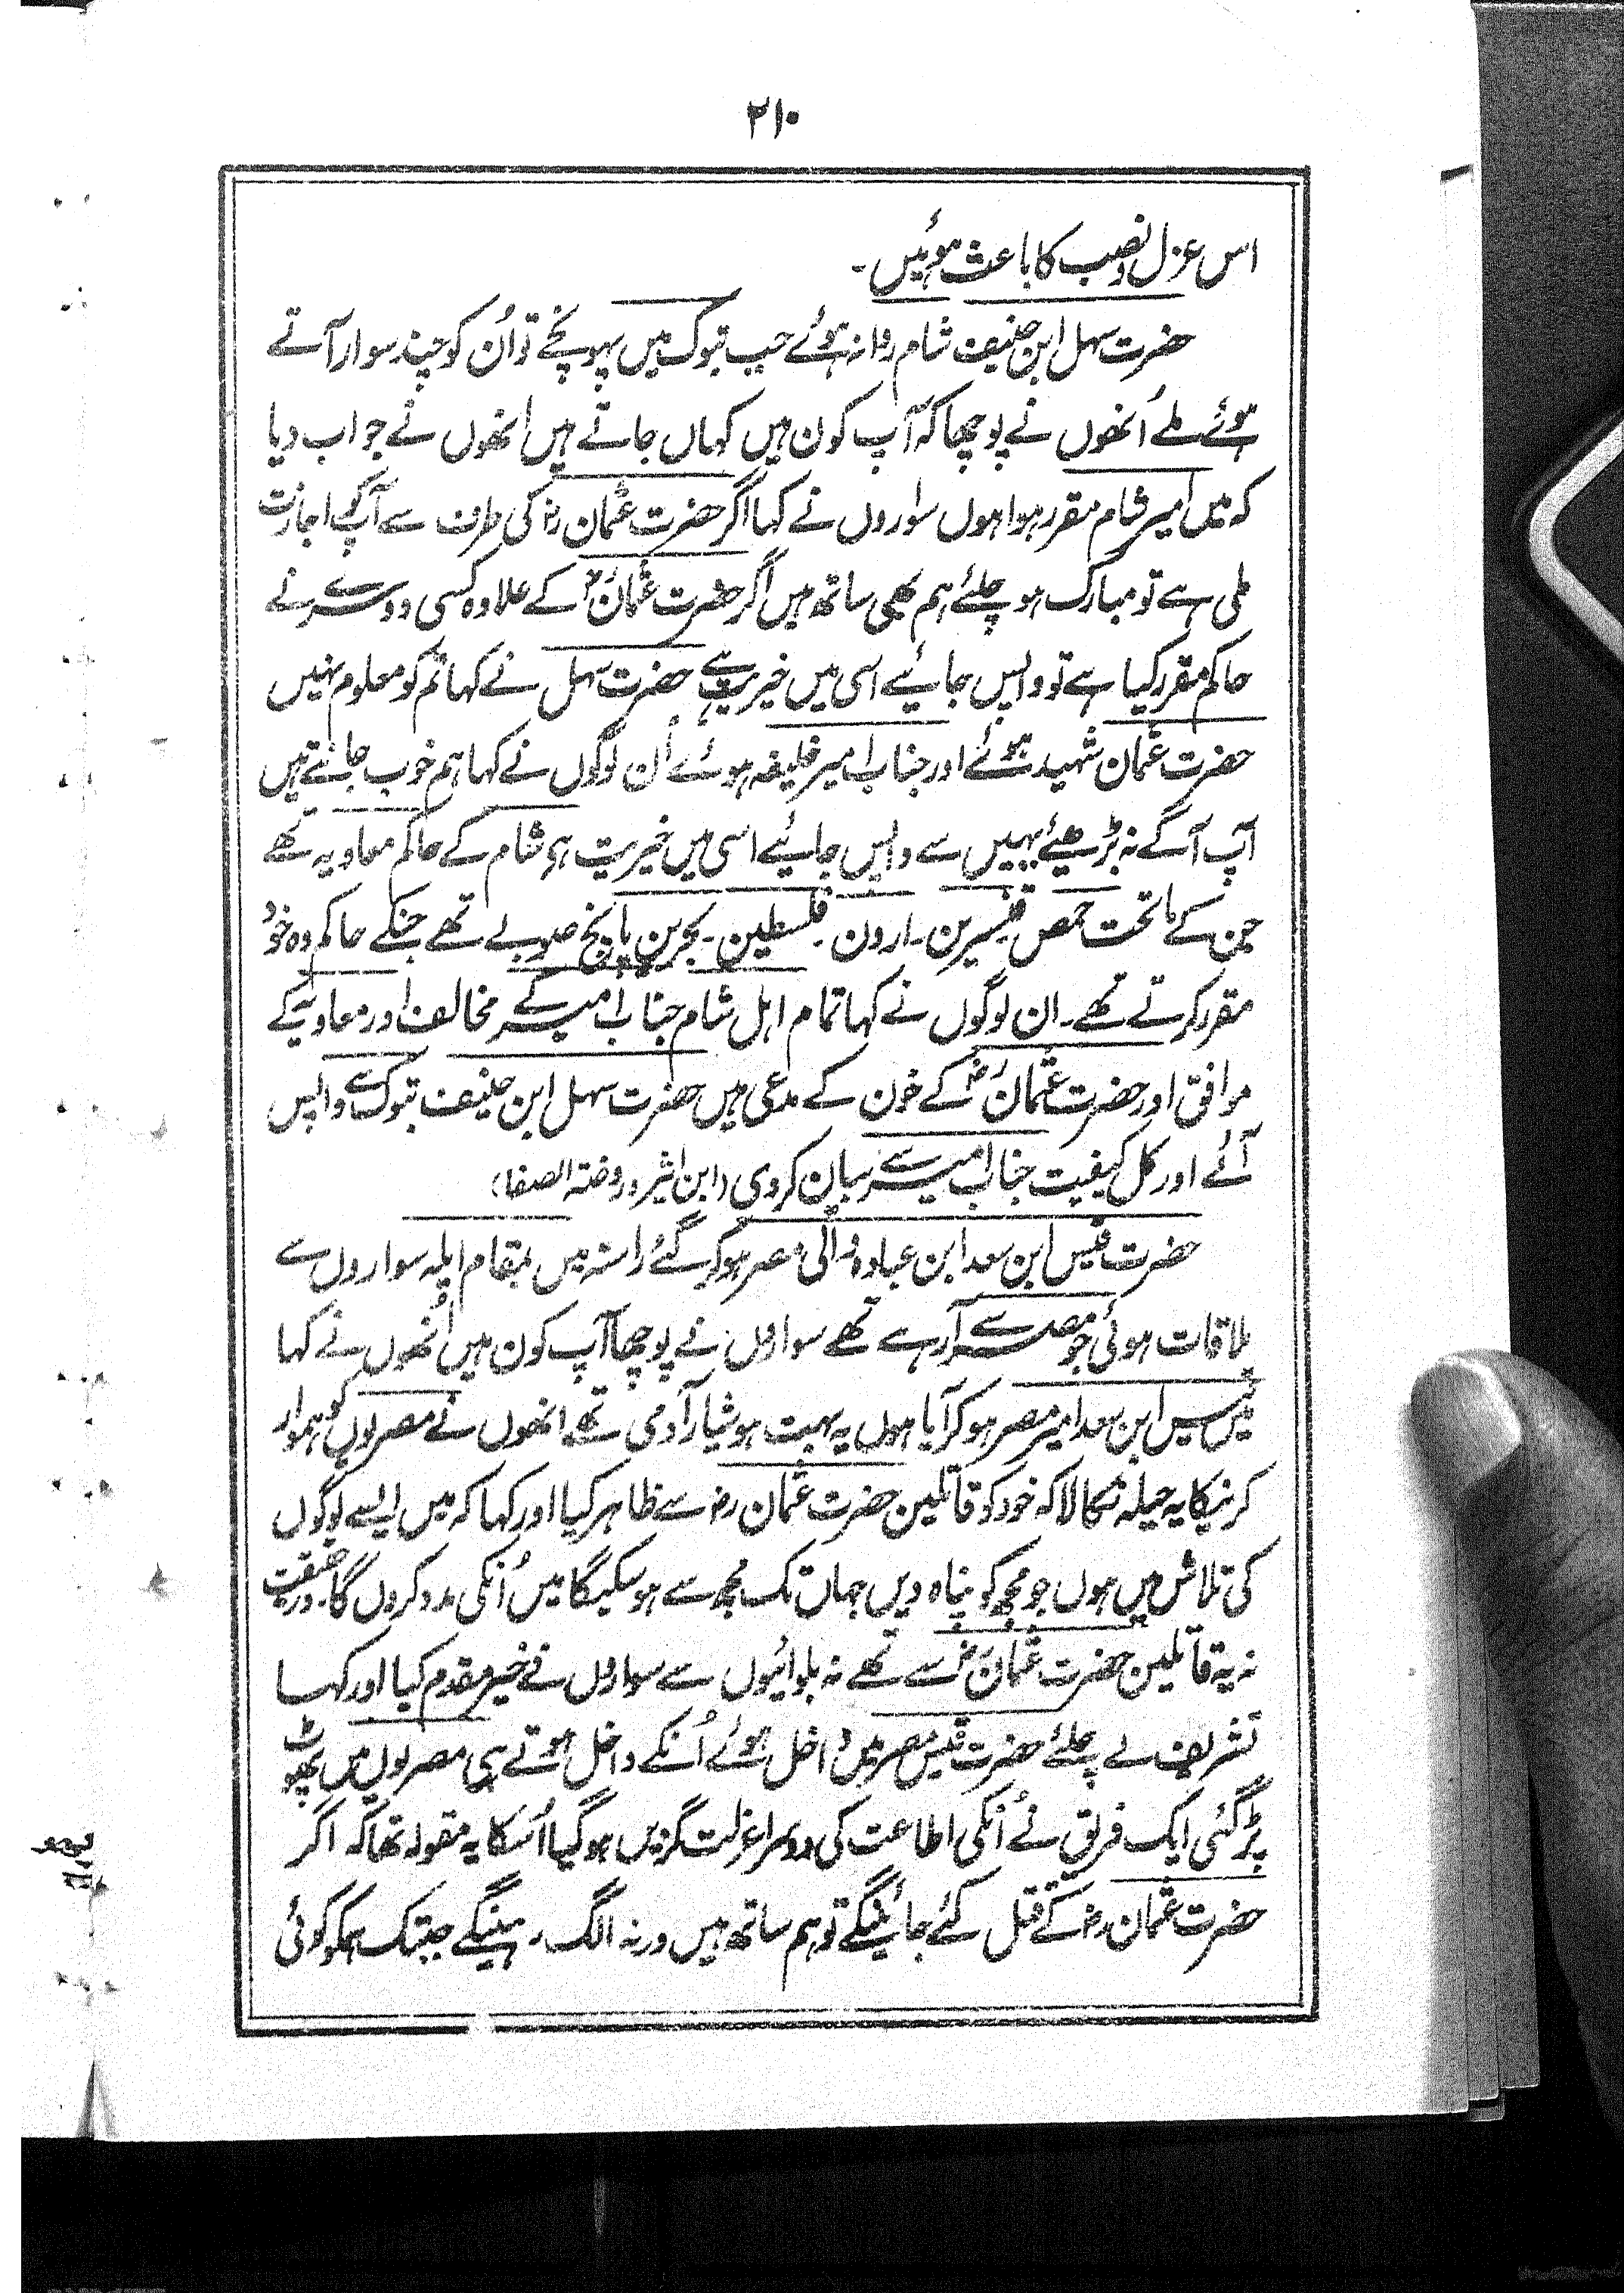 ۲۱۰
اس عزل و نصب کا باعث ہوئیں۔
حضرت سہل ابن حنیف شام روانہ ہوئے جب تبوک میں پہونچے تو اُن کو چند سوار آتے
ہوئے ملے اُنھوں نے پوچھا کہ آپ کون ہیں کہاں جاتے ہیں انھوں نے جواب دیا
کہ میں امیر شام مقرر ہوا ہوں سواروں نے کہا اگر حضرت عثمان رض کی طرف سے آپکو اجازت
ملی ہے تو مبارک ہو چلئے ہم بھی ساتھ ہیں اگر حضرت عثمانؓ کے علاوہ کسی دوسرے نے
حاکم مقرر کیا ہے تو واپس جائیے اسی میں خیریت ہے حضرت سہل نے کہا تم کو معلوم نہیں
حضرت عثمان شہید ہوئے اور جناب امیر خلیفہ ہوئے اُن لوگوں نے کہا ہم خوب جانتے ہیں
آپ آگے نہ بڑھیئے یہیں سے واپس جائیے اسی میں خیریت ہی شام کے حاکم معاویہ تھے
جن کے ماتحت حمص قنیسرین۔ اردن۔ فلسطین۔ بحرین پانچ صوبے تھے جنکے حاکم وہ خود
مقرر کرتے تھے۔ ان لوگوں نے کہا تمام اہل شام جناب امیر کے مخالف اور معاویہ کے
موافق اور حضرت عثمانؓ کے خون کے مدعی ہیں حضرت سہل ابن حنیف تبوک سے واپس
آئے اور کل کیفیت جناب امیر سے بیان کردی (ابن اثیر و روضۃ الصفا)
حضرت قیس ابن سعد ابن عبادہ والی مصر ہو کر گئے راستہ میں بمقام ایلہ سواروں سے
ملاقات ہوئی جو مصر سے آرہے تھے سواروں نے پوچھا آپ کون ہیں اُنھوں نے کہا
میں قیس ابن سعد امیر مصر ہو کر آیا ہوں یہ بہت ہوشیار آدمی تھے انھوں نے مصریوں کو ہموار
کرنیکا یہ حیلہ نکالا کہ خود کو قاتلین حضرت عثمان رض سے ظاہر کیا اور کہا کہ میں ایسے لوگوں
کی تلاش میں ہوں جو مجھ کو پناہ دیں جہاں تک مجھ سے ہو سکیگا میں اُنکی مدد کروں گا۔ درحقیقت
نہ یہ قاتلین حضرت عثمانؓ سے تھے نہ بلوائیوں سے سواروں نے خیر مقدم کیا اور کہا
تشریف لے چلئے حضرت قیس مصر میں داخل ہوئے اُنکے داخل ہوتے ہی مصریوں میں پھوٹ
پڑ گئی ایک فریق نے اُنکی اطاعت کی دوسرا عزلت گزیں ہو گیا اُسکا یہ مقولہ تھا کہ اگر
حضرت عثمان رض کے قتل کئے جائینگے تو ہم ساتھ ہیں ورنہ الگ رہینگے جبتک ہمکو کوئی